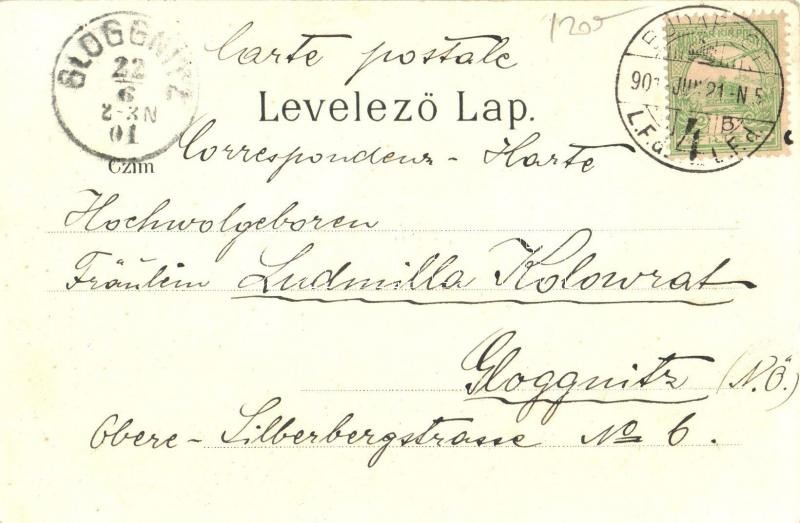 1205
Carte postale
GLOGGNITZ
22
6
2-3N
01
BUDAPEST
901 JUN 21-N 5
4
L.F.d.
Levelező Lap.
Correspondenz-Karte
Czim
Hochwolgeboren
Fräulein Ludmilla Kolowrat
Gloggnitz (N.Ö.)
Obere-Silberbergstrasse No 6.